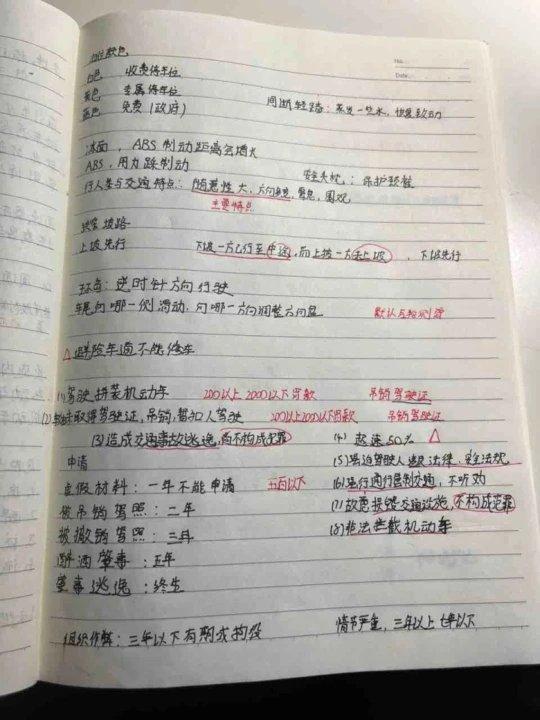 No.
Date.
车位颜色
白色 收费停车位
黄色 专属停车位
蓝色 免费(政府)
间断轻踏:蒸发一些水,恢复制动
冰面,ABS制动距离会增大
ABS,用力踩制动
安全头枕:保护颈椎
行人参与交通特点:随意性大,方向多变,聚集,围观
主要特点
狭窄坡路
上坡先行 下坡一方已行至中途,而上坡一方未上坡,下坡先行
环岛:逆时针方向行驶
车尾向哪一侧滑动,向哪一方向调整方向盘 默认后轮侧滑
△避险车道不能修车
(1)驾驶拼装机动车 200以上2000以下罚款 吊销驾驶证
取得驾驶证,吊销,暂扣人驾驶 200以上2000以下罚款 吊销驾驶证
(3)造成交通事故逃逸,尚不构成犯罪 (4)超速50% △
申请 (5)强迫驾驶人 法律,安全法规
虚假材料:一年不能申请 五百以下 (6)强行通行管制交通,不听劝
被吊销驾照:二年 (7)故意损毁交通设施,不构成犯罪
被撤销驾照:三年 (8)非法拦截机动车
醉酒肇事:五年
肇事逃逸:终生
组织作弊:三年以下有期或拘役 情节严重,三年以上七年以下